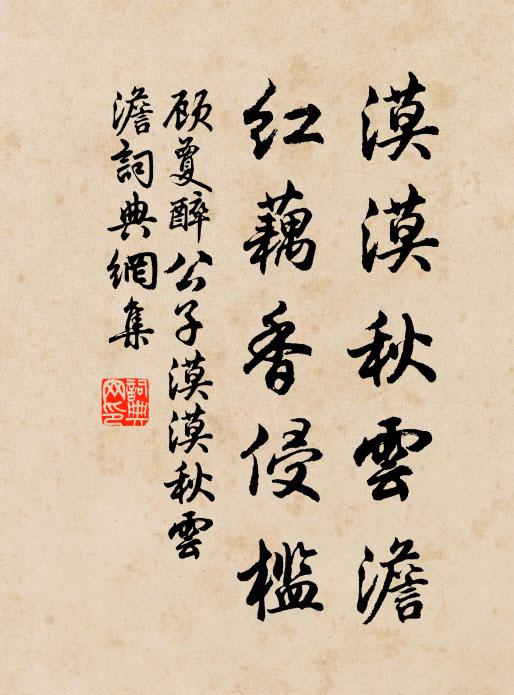 漠漠秋雲澹
紅藕香侵檻
顧敻醉公子漠漠秋雲
澹詞典網集
詞典網印